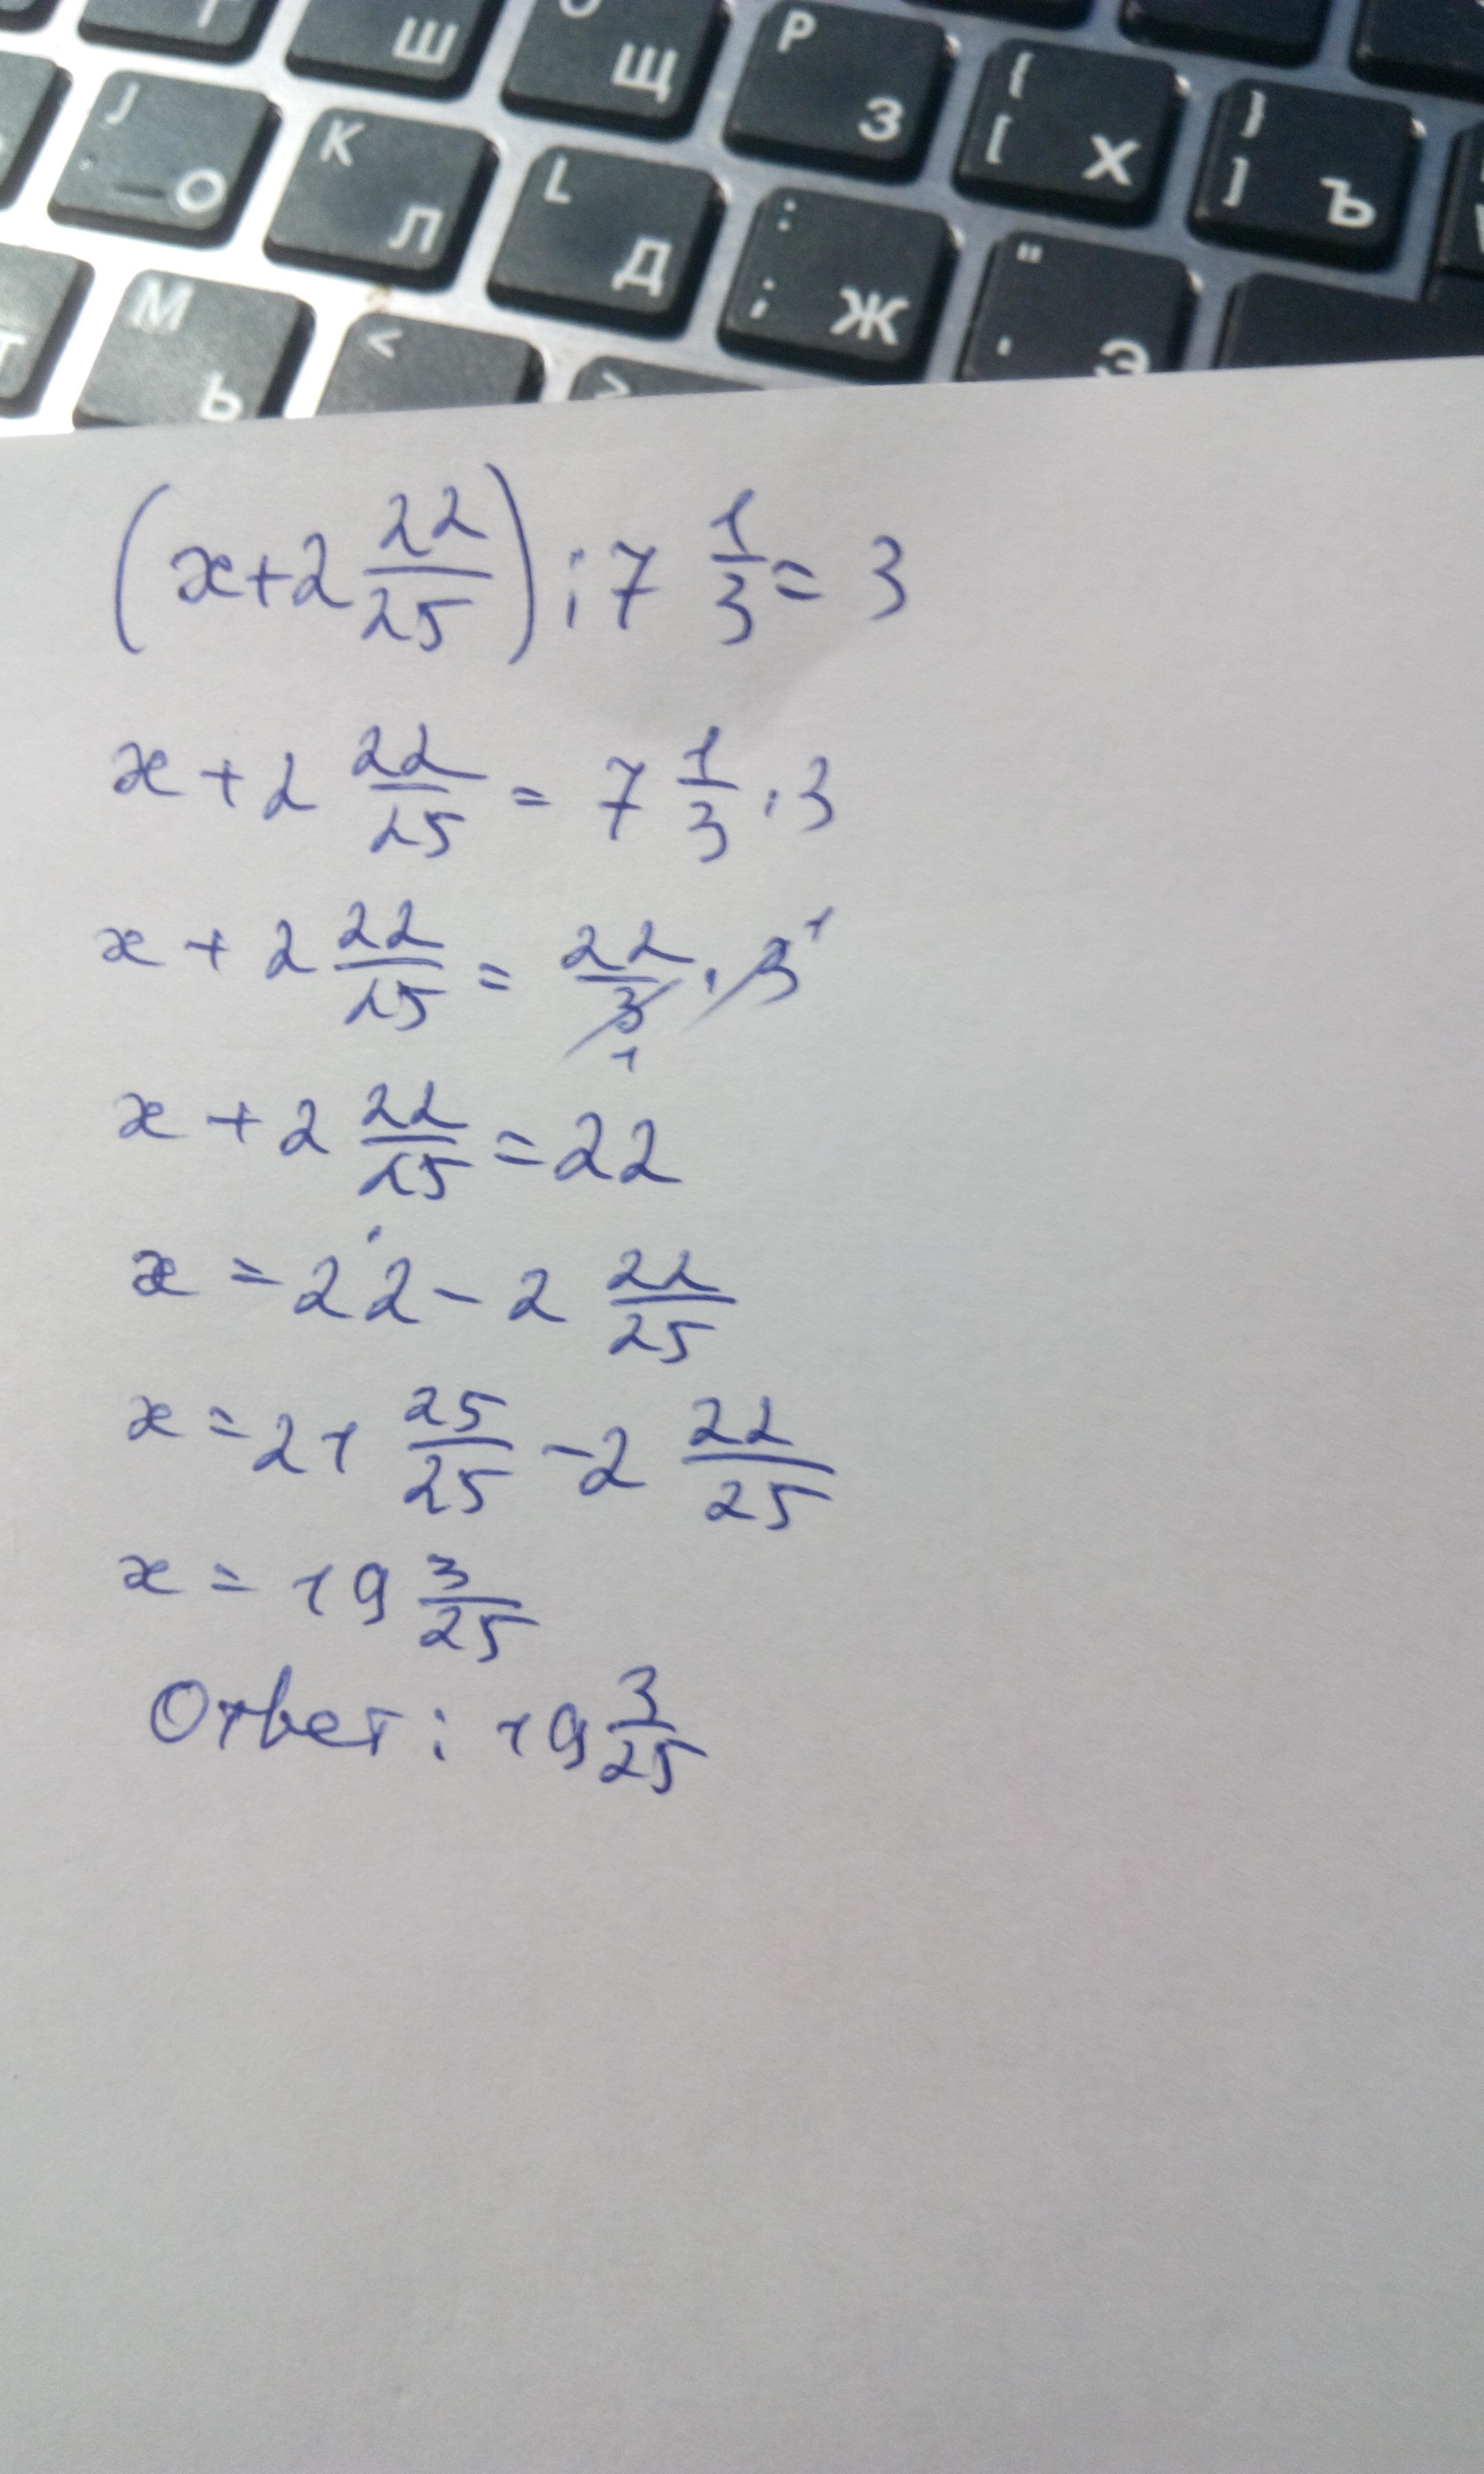 Ш Щ P З { [ Х } ] Ъ
J О K Л L Д : ; Ж " ' Э
M Ь < >
(x+2 22/25) : 7 1/3 = 3
x + 2 22/25 = 7 1/3 · 3
x + 2 22/25 = 22/3 1 · 3 1
x + 2 22/25 = 22
x = 22 - 2 22/25
x = 21 25/25 - 2 22/25
x = 19 3/25
Ответ: 19 3/25